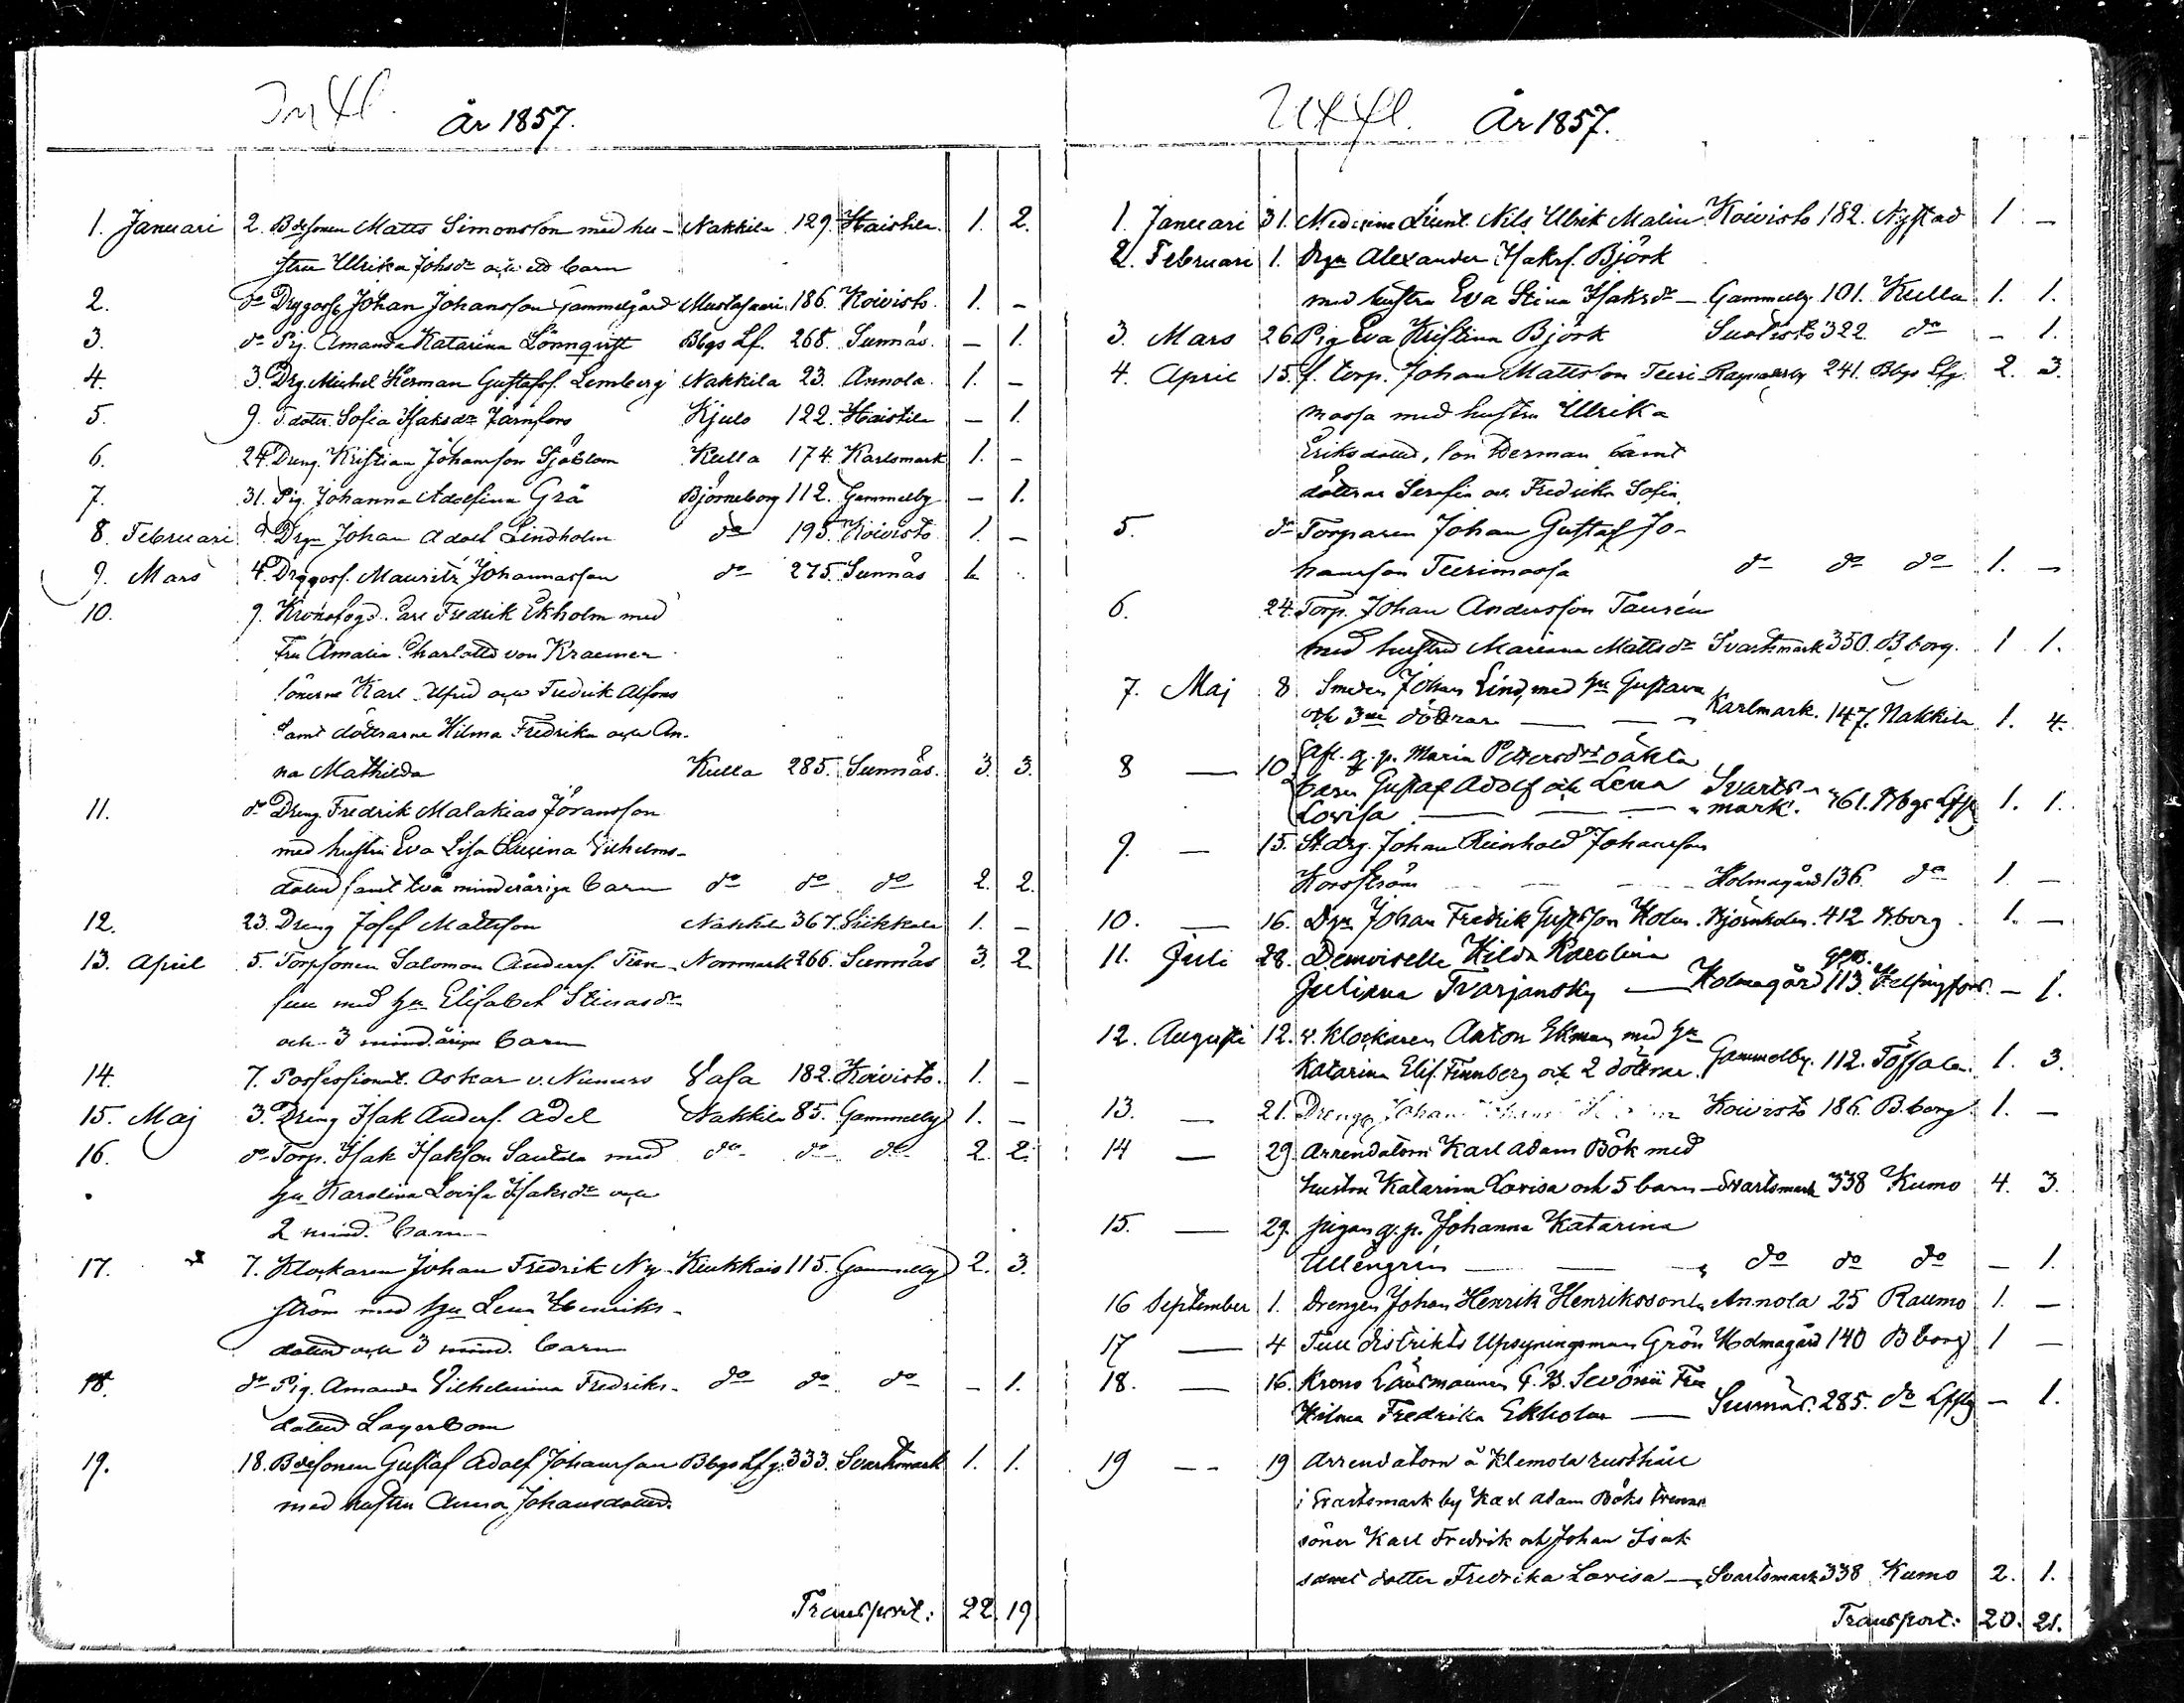 Infl. År 1857.
1. Januari 2. Bdesonen Matts Simonsson med hu- Nakkila 129. Haistila. 1. 2.
stru Ulrika Johsdr och ett barn
2. do Drggoss. Johan Johansson Gammelgård Mustasaari 186. Koivisto. 1. -
3. do Pig. Amanda Katarina Lönnqvist Bbgs Lf. 268. Sunnäs. - 1.
4. 3. Drg. Michel Herman Gustafss. Lemberg Nakkila 23. Annola. 1. -
5. 9. T.doter. Sofia Isaksdr Järnfors Kjulo 122. Haistila - 1.
6. 24. Dreng. Kristian Johansson Sjöblom Kulla 174. Karlsmark 1. -
7. 31. Pig. Johanna Adolfina Grå Björneborg 112. Gammelby - 1.
8. Februari 9 Drgn Johan Adolf Lindholm do 195. Koivisto 1. -
9. Mars 4. Drggoss. Mauritz Johannasson do 275. Sunnäs 1.
10. 9. Kronofogd. Fredrik Ekholm med
Fru Amalia Charlotta von Kraemer
sönerne Karl Alfred och Fredrik Alfons
samt döttrarne Hilma Fredrika och An-
na Mathilda Kulla 285. Sunnäs. 3. 3.
11. do Dreng Fredrik Malakias Göransson
med hustru Eva Lisa Vilhelms-
dotter samt två minderåriga barn do do do 2. 2.
12. 23. Dreng Josef Mattsson Nakkila 367. 1. -
13. April 5. Torpsonen Salomon Anders. Norrmark 266. Sunnäs 3. 2
med hu Elisabeth Stinasdr
och 3 mind.åriga barn
14. 7. Possessionat. Oskar v. Numers Vasa 182. Koivisto. 1. -
15. Maj 3. Dreng Isak Anders. Adel Nakkila 85. Gammelby 1. -
16. do Torp. Isak Isaksson Santala med do do do 2. 2.
hu Karolina Lovisa Isaksdr och
2 mind. barn
17. 7. Klockaren Johan Fredrik Ny- Kiukkais 115. Gammelby 2. 3.
ström med hu Lena Henriks-
dotter och 3 mind. barn
18. do Pig. Amanda Vilhelmina Fredriks- do do do - 1.
dotter Lagerbom
19. 18. Bdesonen Gustaf Adolf Johansson Bbgs Lfg. 333. Svartsmark 1. 1.
med hustru Anna Johansdotter.
Transport: 22. 19
Utfl. År 1857.
1. Januari 31. Medicine Licent. Nils Ulrik Malin Koivisto 182. Nystad 1 -
2. Februari 1. Drgn Alexander Isakss. Björk
med hustru Eva Stina Isaksdr - Gammelby 101. Kulla 1. 1.
3. Mars 26 Pig Eva Kristina Björk 322 do - 1.
4. April 15. f. torp. Johan Mattsson Teeri- Ragnarsby 241. Bbgs Lfg. 2. 3.
mossa med hustru Ulrika
Eriksdotter, son Herman samt
döttrar Serafia och Fredrika Sofia
5. do Torparen Johan Gustaf Jo-
hansson Teerimossa do do do 1. -
6. 24. Torp. Johan Andersson Taurén
med hustru Mariana Mattsdr Svartsmark 350. B.borg. 1 1.
7. Maj 8 Smeden Johan Lind, med hu Gustava
och 3ne döttrar Karlmark. 147. Nakkila 1. 4.
8 — 10 afl. g. p. Maria Petersdrs oäkta
barn Gustaf Adolf och Lena Svarts-
Lovisa mark. 361. Bbgs Lfg 1. 1.
9. — 15. St.drg. Johan Reinhold Johansson
Korsström Holmagård 136. do 1. -
10. — 16. Dgn Johan Fredrik Gustfsson Holm. Björnholm. 412 Bborg. 1. -
11. Juli 28. Demoiselle Hilda Karolina
Juliana Tvarjansky — Holmagård 113. Helsingfors. - 1.
12. Augusti 12. v. Klockaren Anton Ekman med hu
Katarina Elis. Finnberg och 2 döttrar. Gammelby. 112. 1. 3.
13. — 21. Drengen Johan Koivisto 186. B.borg. 1. -
14 — 29. Arrendatorn Karl Adam Böök med
hustru Katarina Lovisa och 5 barn - Svartsmark 338 Kumo 4. 3.
15. — 29. pigan g. p. Johanna Katarina
Ullengrén do do do - 1.
16 September 1. Drengen Johan Henrik Henriksson Annola 25 Raumo 1. -
17 — 4 Tull distrikts Upsyningsman Grön Holmagård 140 B borg 1 -
18. — 16. Krono Länsmannen G. B. Sevónii Fru
Hilma Fredrika Ekholm — Sunnäs. 285. do Lfsg - 1.
19 — 19 Arrendatorn å Klemola rusthåll
i Svartsmark by Karl Adam Bööks trenne
söner Karl Fredrik och Johan Isak
samt dotter Fredrika Lovisa — Svartsmark 338 Kumo 2. 1.
Transport: 20. 21.